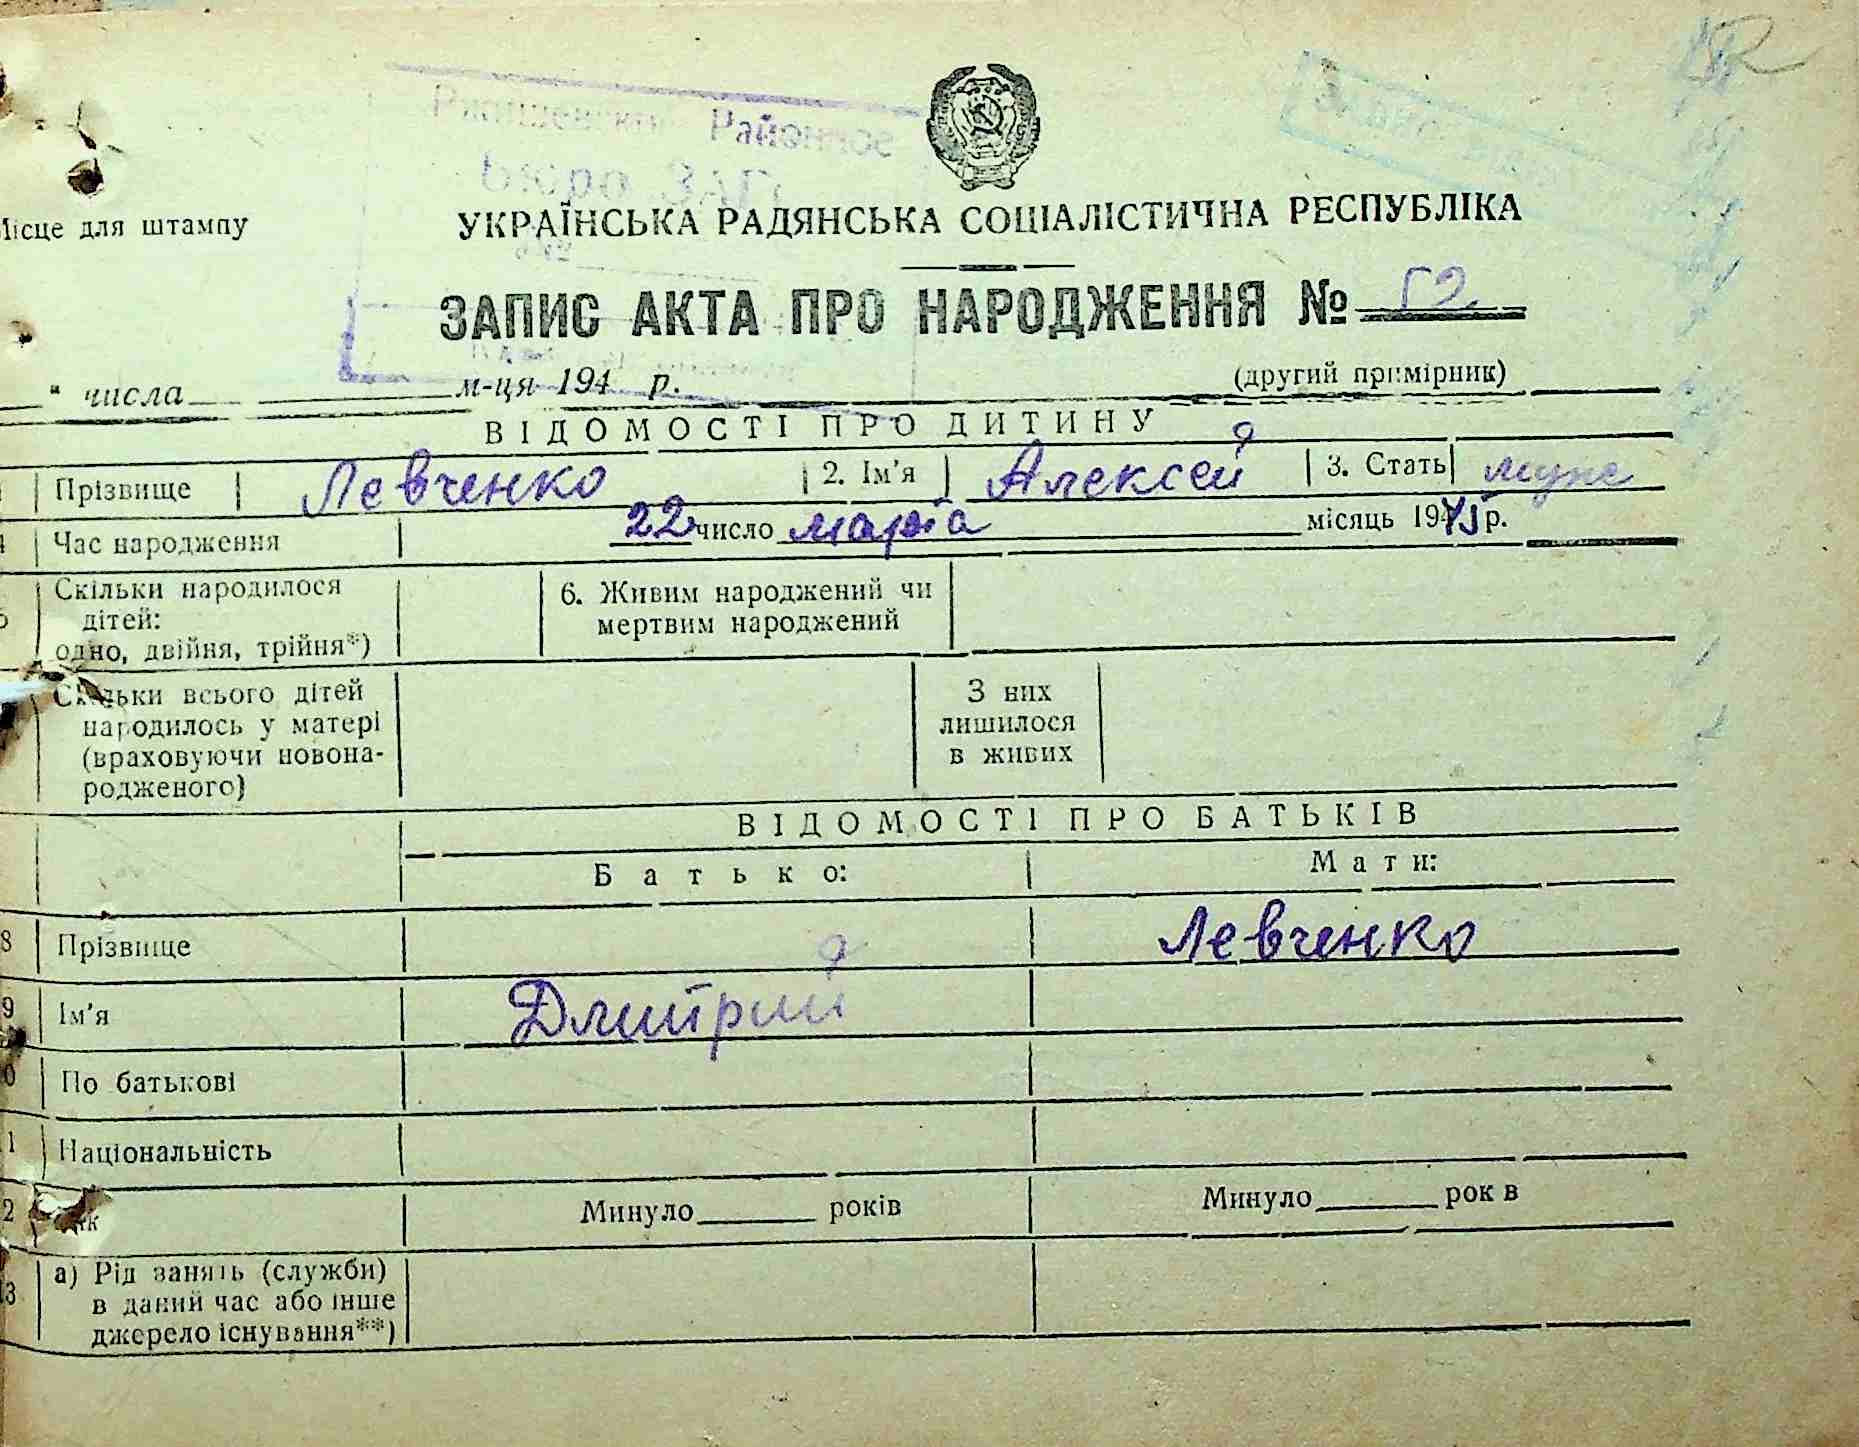 Районное
Бюро ЗАГС
Місце для штампу
УКРАЇНСЬКА РАДЯНСЬКА СОЦІАЛІСТИЧНА РЕСПУБЛІКА
ЗАПИС АКТА ПРО НАРОДЖЕННЯ № 52
" числа м-ця 194 р. (другий примірник)
ВІДОМОСТІ ПРО ДИТИНУ
Прізвище Левченко 2. Ім'я Алексей 3. Стать муж
Час народження 22 число марта місяць 1945 р.
Скільки народилося дітей: одно, двійня, трійня*) 6. Живим народжений чи мертвим народжений
Скільки всього дітей народилось у матері (враховуючи новонародженого) З них лишилося в живих
ВІДОМОСТІ ПРО БАТЬКІВ
Батько: Мати:
8 Прізвище Левченко
9 Ім'я Дмитрий
0 По батькові
1 Національність
2 Вік Минуло років Минуло рок в
13 а) Рід занять (служби) в даний час або інше джерело існування**)